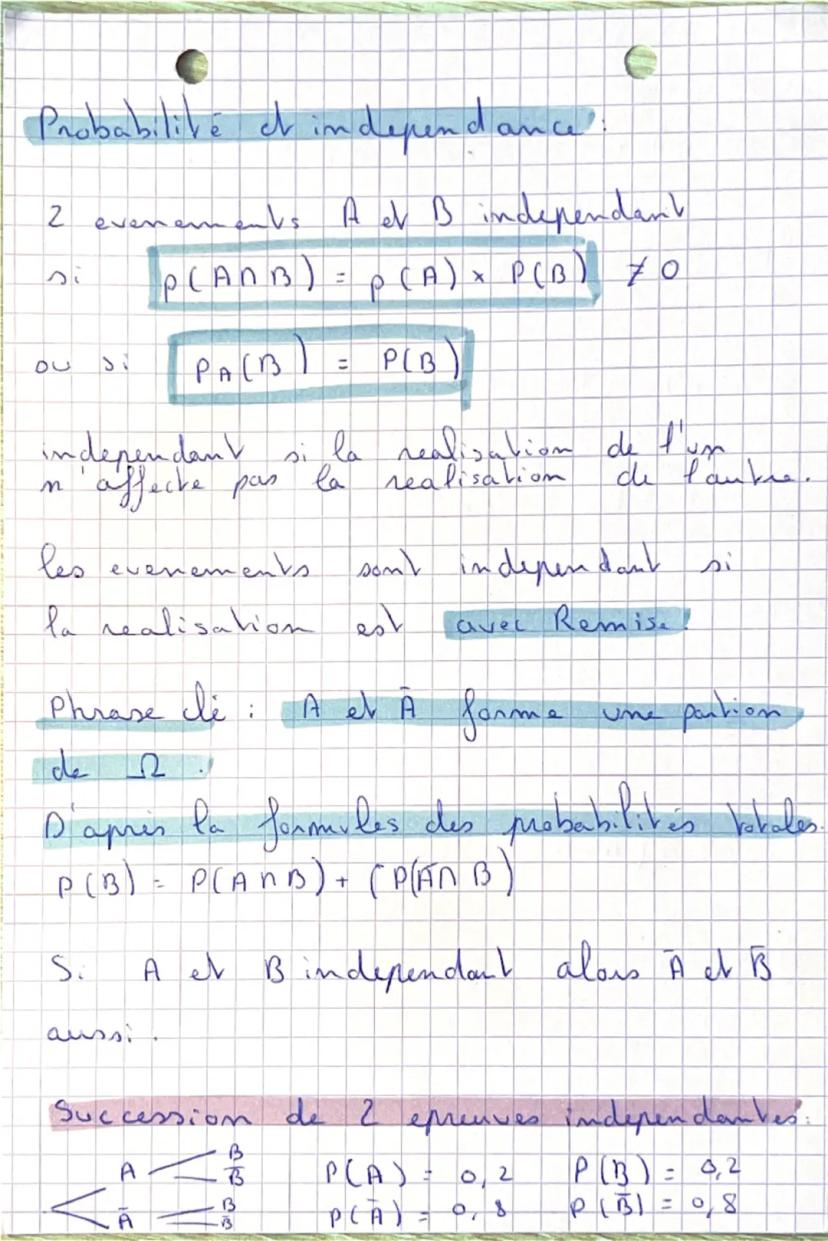 Probabilité et independance :
2 evenements A et B independant
si p(A∩B) = p(A) × P(B) ≠ 0
ou si PA(B) = P(B)
independant si la realisation de l'un
n'affecte pas la realisation de l'autre.
les evenements sont independant si
la realisation est avec Remise!
Phrase clé : A et Ā forme une partion
de Ω.
D'après la formules des probabilités totales.
P(B) = P(A∩B) + (P(Ā∩B)
Si A et B independant alors Ā et B̄
aussi.
Succession de 2 epreuves independantes:
B
A B̄ P(A) = 0,2 P(B) = 0,2
B
Ā B̄ P(Ā) = 0,8 P(B̄) = 0,8